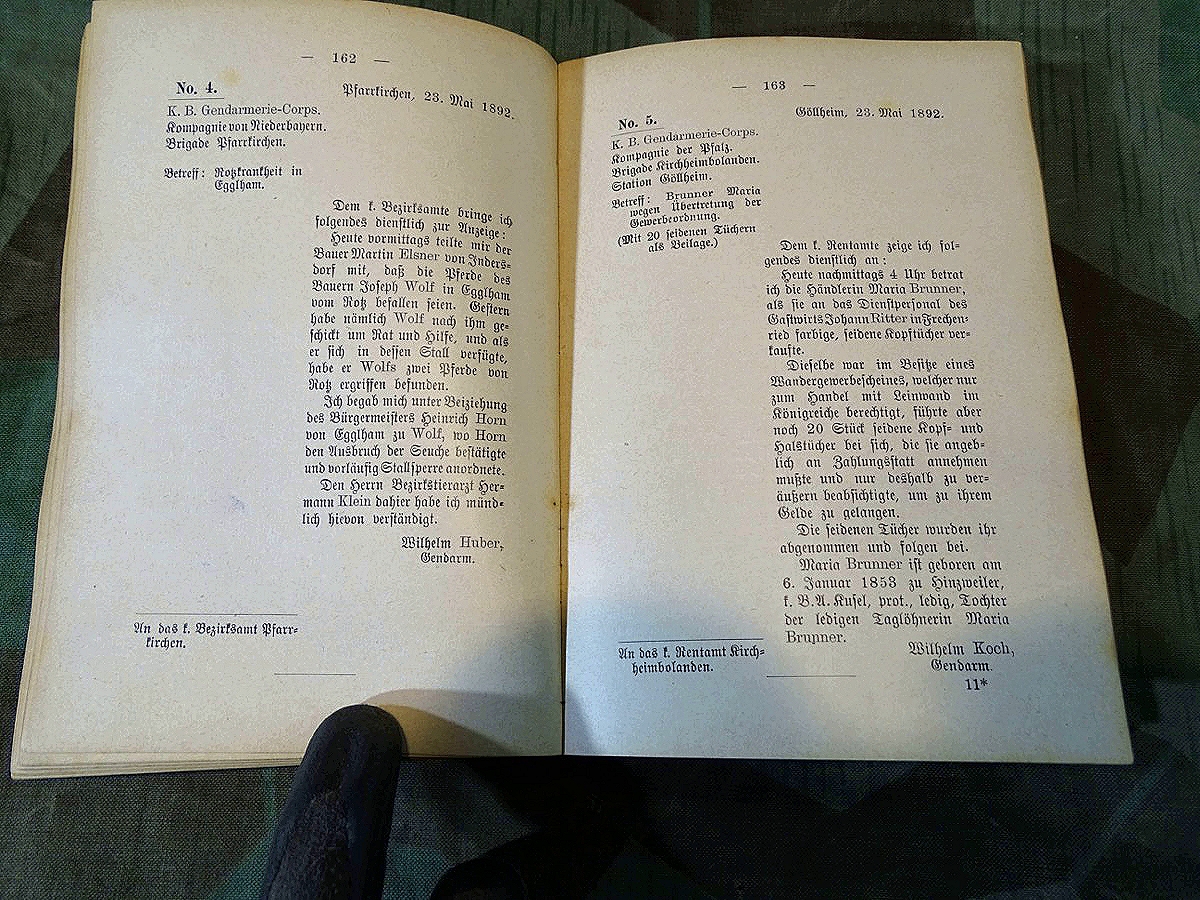 — 162 —
No. 4.
Pfarrkirchen, 23. Mai 1892.
K. B. Gendarmerie-Corps.
Kompagnie von Niederbayern.
Brigade Pfarrkirchen.
Betreff: Rotzkrankheit in
Egglham.
Dem k. Bezirksamte bringe ich
folgendes dienstlich zur Anzeige:
Heute vormittags teilte mir der
Bauer Martin Elsner von Inders-
dorf mit, daß die Pferde des
Bauern Joseph Wolf in Egglham
vom Rotz befallen seien. Gestern
habe nämlich Wolf nach ihm ge-
schickt um Rat und Hilfe, und als
er sich in dessen Stall verfügte,
habe er Wolfs zwei Pferde von
Rotz ergriffen befunden.
Ich begab mich unter Beiziehung
des Bürgermeisters Heinrich Horn
von Egglham zu Wolf, wo Horn
den Ausbruch der Seuche bestätigte
und vorläufig Stallsperre anordnete.
Den Herrn Bezirkstierarzt Her-
mann Klein dahier habe ich münd-
lich hievon verständigt.
Wilhelm Huber,
Gendarm.
An das k. Bezirksamt Pfarr-
kirchen.
— 163 —
Göllheim, 23. Mai 1892.
No. 5.
K. B. Gendarmerie-Corps.
Kompagnie der Pfalz.
Brigade Kirchheimbolanden.
Station Göllheim.
Betreff: Brunner Maria
wegen Übertretung der
Gewerbeordnung.
(Mit 20 seidenen Tüchern
als Beilage.)
Dem k. Rentamte zeige ich fol-
gendes dienstlich an:
Heute nachmittags 4 Uhr betrat
ich die Händlerin Maria Brunner,
als sie an das Dienstpersonal des
Gastwirts Johann Ritter in Frechen-
ried farbige, seidene Kopftücher ver-
kaufte.
Dieselbe war im Besitze eines
Wandergewerbescheines, welcher nur
zum Handel mit Leinwand im
Königreiche berechtigt, führte aber
noch 20 Stück seidene Kopf- und
Halstücher bei sich, die sie angeb-
lich an Zahlungsstatt annehmen
mußte und nur deshalb zu ver-
äußern beabsichtigte, um zu ihrem
Gelde zu gelangen.
Die seidenen Tücher wurden ihr
abgenommen und folgen bei.
Maria Brunner ist geboren am
6. Januar 1853 zu Hinzweiler,
k. B.A. Kusel, prot., ledig, Tochter
der ledigen Taglöhnerin Maria
Brunner.
Wilhelm Koch,
Gendarm.
An das k. Rentamt Kirch-
heimbolanden.
11*